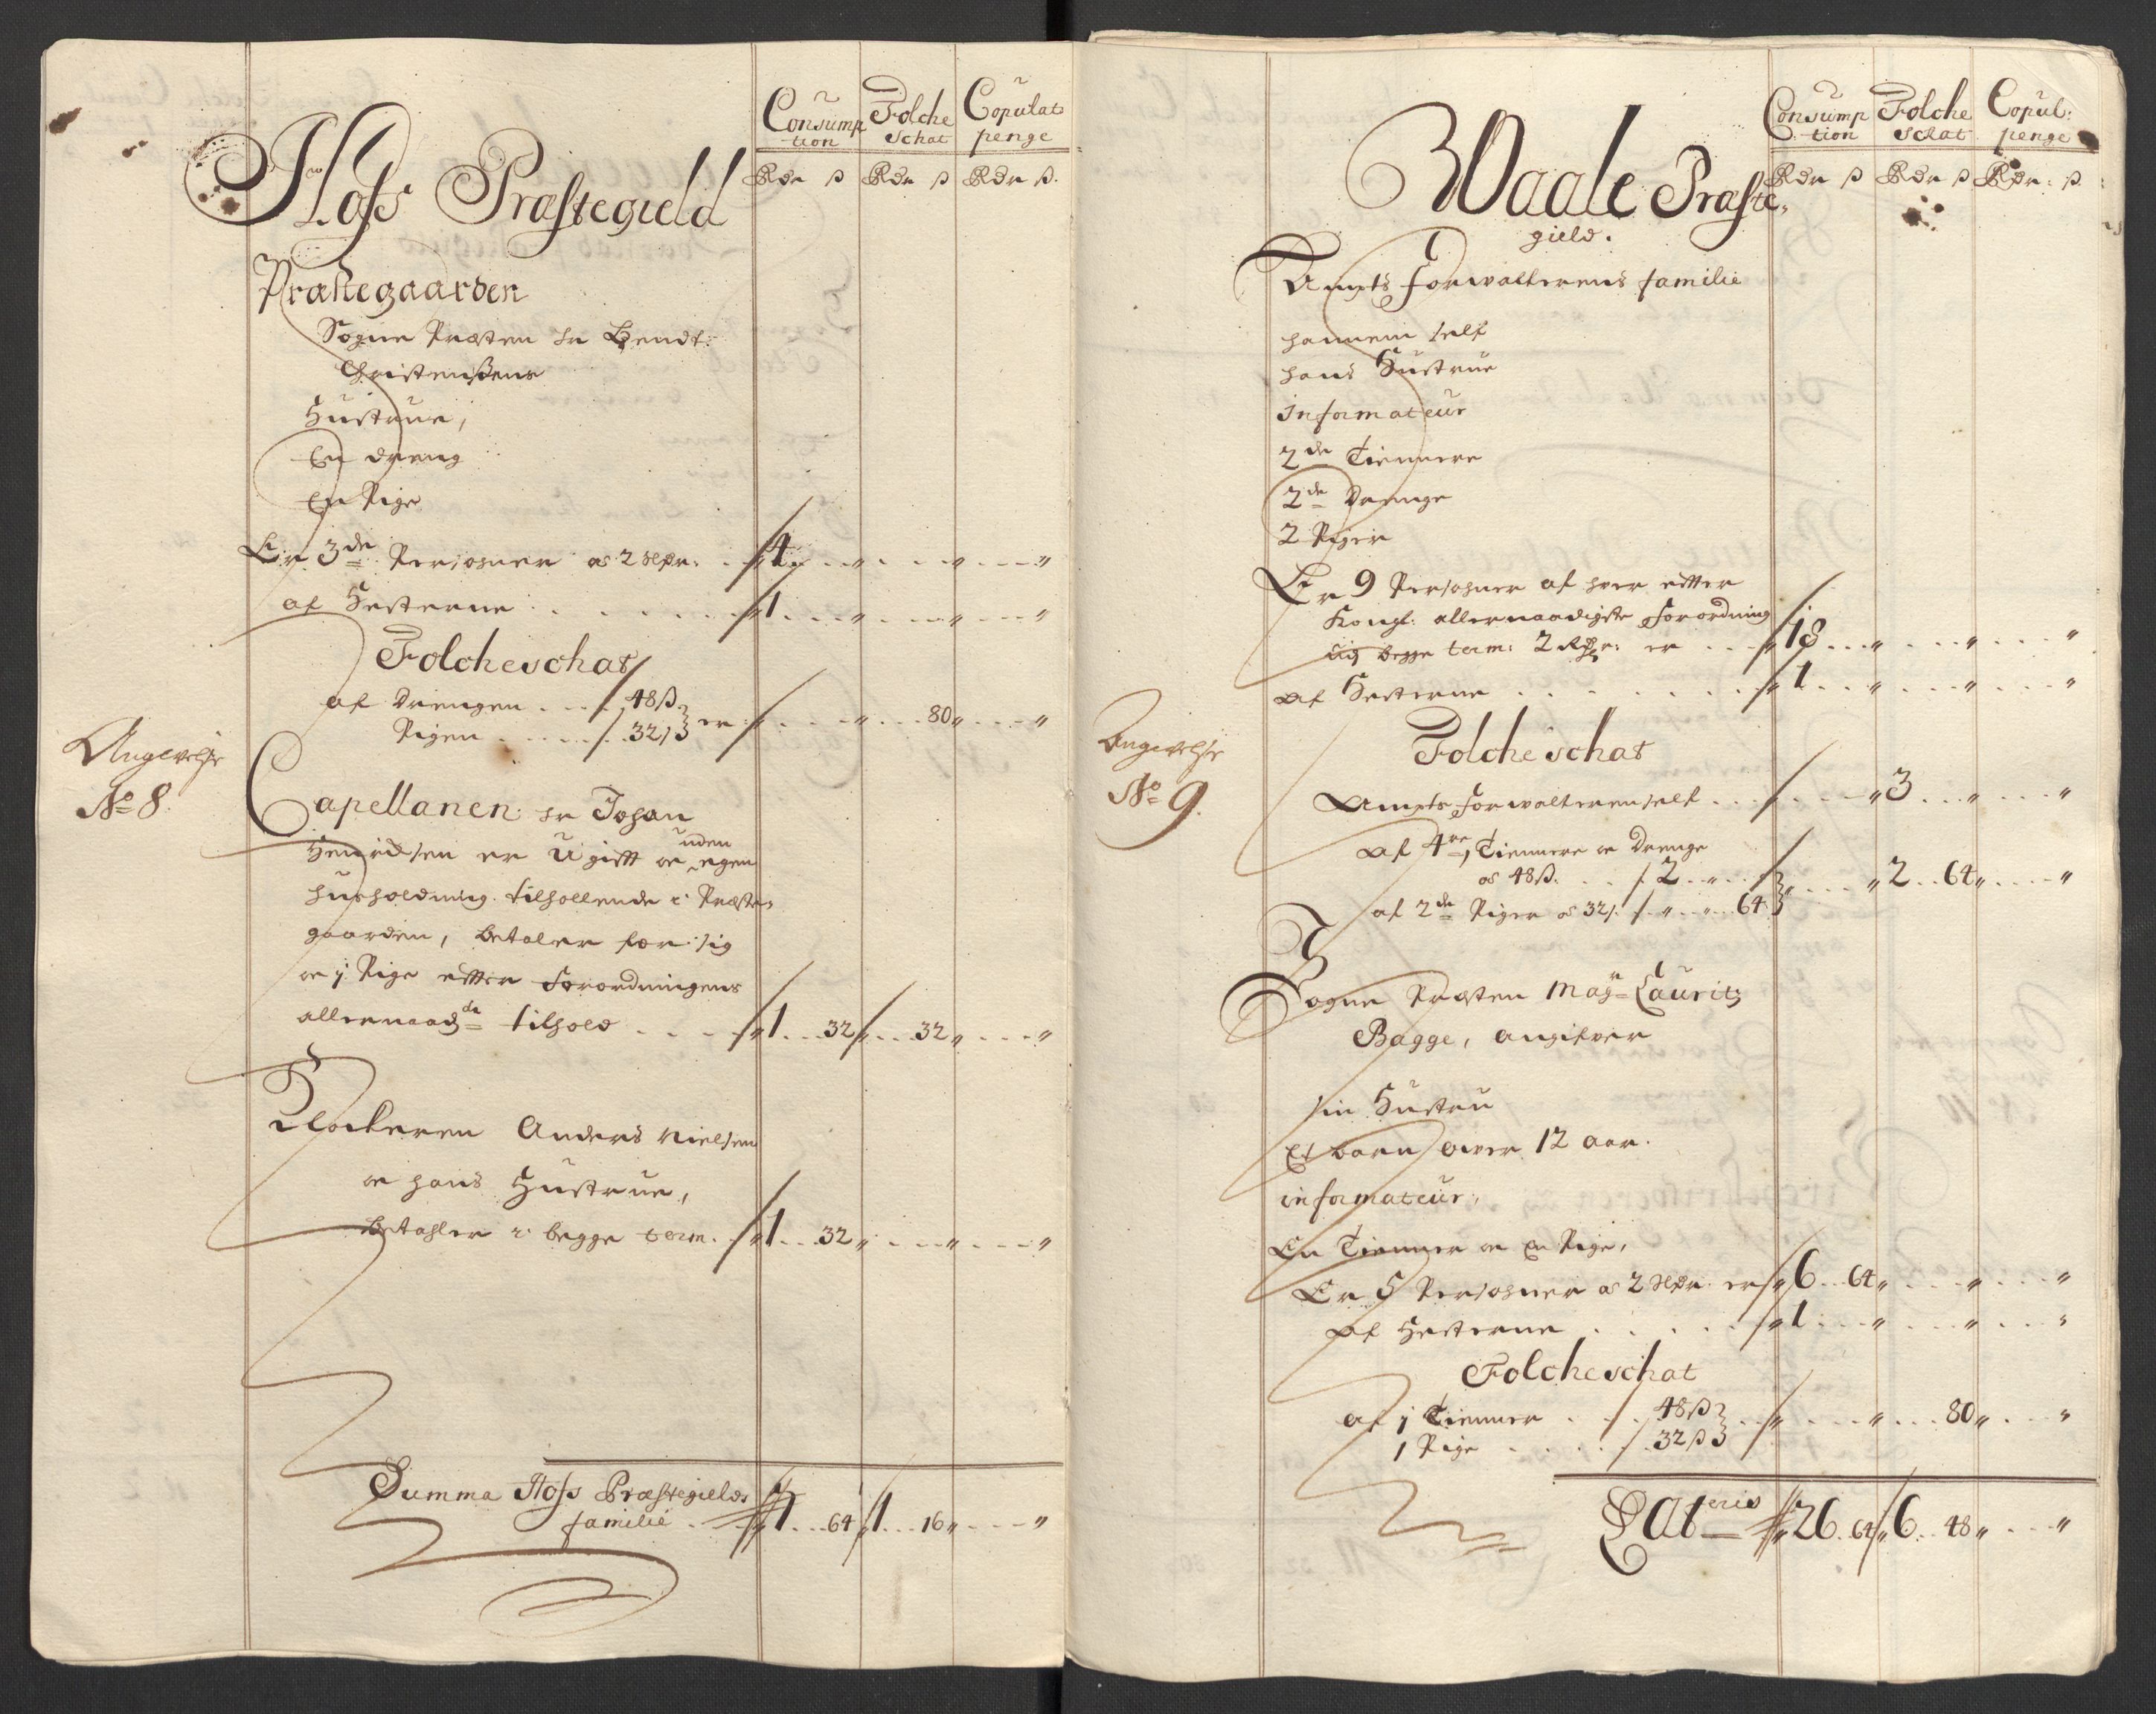 Consump Folche Copulat
tion schat penge
Rdr ß Rdr ß Rdr ß.
Hofs Præstegield
Præstegaarden
Sogne Præsten Hr Bendt:
Christensens
Hustrue,
En dreng
En Pige
Er 3de Persohner a 2 Rdr: . . 4 . . „ . . . „ . . . „
af Hesterne . . . . . . 1 . . . „ . . . „ . . . „
Folcheschat
af Drengen . . . 48 ß
Pigen . . . . . 32 ß er . . . „ . . . 80 „ . . . „
Angivelse
No 8.
Capellanen: Hr Johan
Henrichsen er Ugift oc uden egen
huusholdning. tilhollende i Præste„
gaarden, betaler for sig
oc 1 Pige efter Forordningens
allernaadde tilhold . . . . 1 . . 32 . . . 32 „ . . . „
Klockeren Anders Nielsen
oc hans Hustrue,
betahler i begge term. . 1 . . 32 „ . . . „ . . . „
Summa Hofs Præstegields
familie . . . 64 1 . . 16 „ . . . „
Consump Folche Copul:
tion schat penge
Rdr ß Rdr ß Rdr: ß
Waale Præste„
gield.
Ambts Forwalterens familie
hannem self
hans Hustrue
informateur
2de Tiennere
2de Drenge
2 Piger
Er 9 Persohner af hver efter
Kongl: allernaadigste Forordning
udj begge term: 2 Rdr: er . . . 18 . . . „ . . . „ . . . „
af Hesterne . . . . . . . 1 . . . „ . . . „ . . . „
Angivelse
No 9.
Folcheschat
Ambts Forwalteren self . . . . . . „ 3 . . . „ . . . „
af 4re Tiennere oc Drenge
a 48 ß. . . 2 . . „ . . . . . „ 2 . . 64 „ . . . „
af 2de Piger a 32 ß „ . . „ . . 64
Sogne Præsten Magr Laurits
Bagge, angifver
sin Hustru
Et barn over 12 aar.
informateur,
En Tienner oc en Pige,
Er 5 Persohner a 2 Rdr. er „ 6 . . 64 „ . . . „ . . . „
af Hesterne . . . . . 1 . . . „ . . . „ . . . „
Folcheschat
af 1 Tienner . . . 48 ß
1 Pige . . . . . 32 ß . . „ . . . „ . . . 80 „ . . . „
Lateris 26 . 64 6 . . 48 „ . . . „